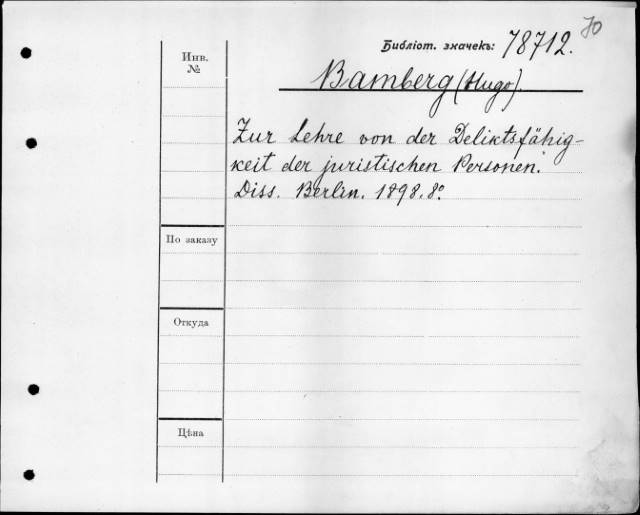 70
Библіот. значекъ: 78712.
Инв.
№
Bamberg (Hugo).
Zur Lehre von der Deliktsfähig-
keit der juristischen Personen.
Diss. Berlin. 1898. 8º.
По заказу
Откуда
Цѣна